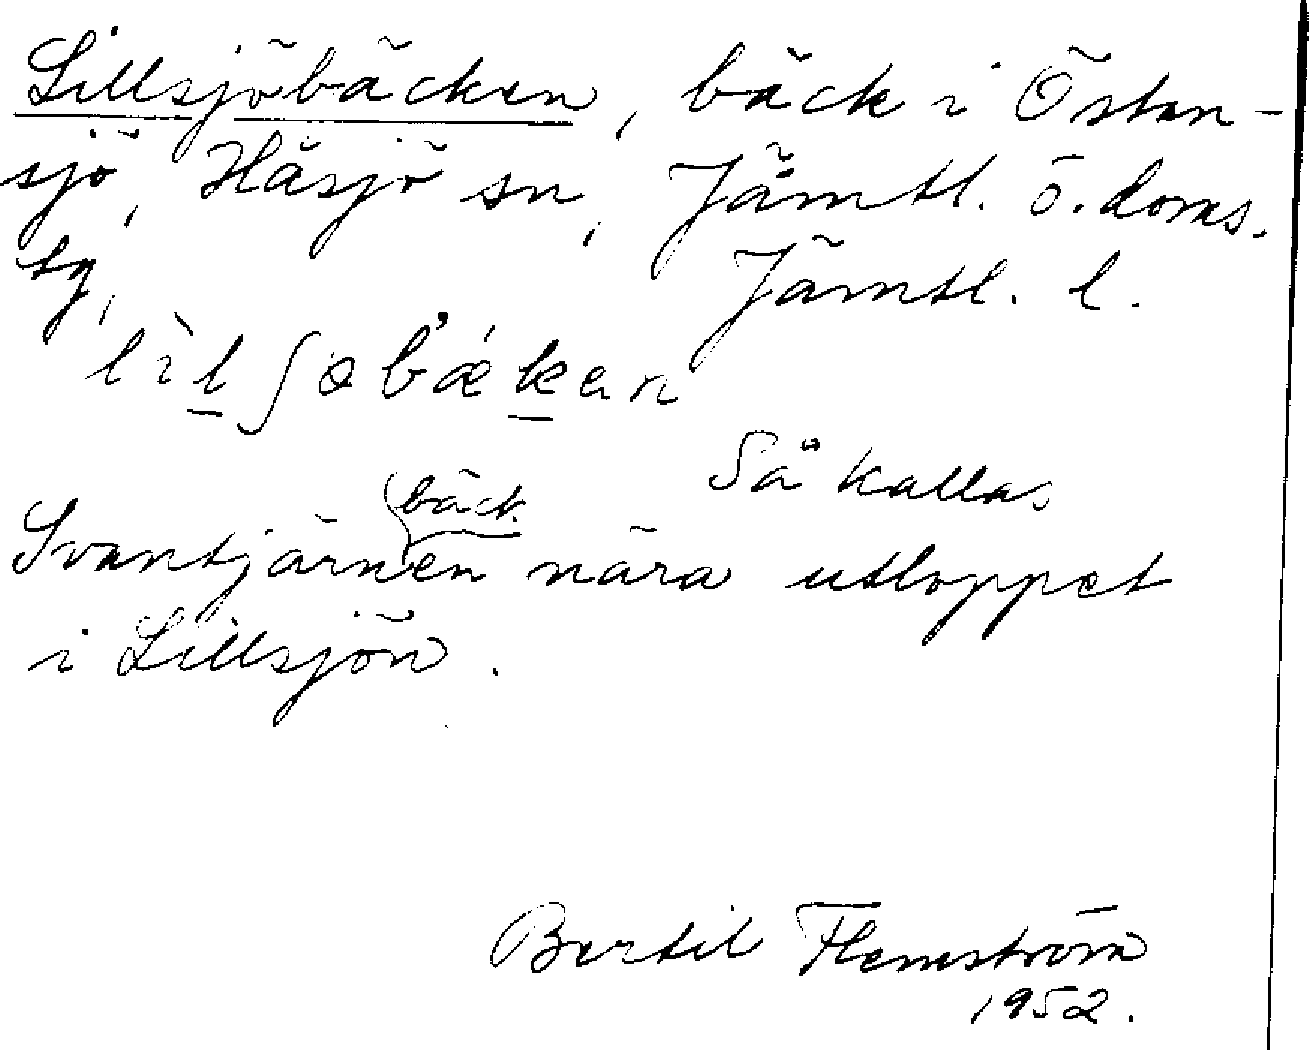 Lillsjöbäcken, bäck i Östan-
sjö, Håsjö sn, Jämtl. ö. doms.
tg, Jämtl. l.
lìlʃøbǽken
Så kallas
bäck
Svantjärnen nära utloppet
i Lillsjön.
Bertil Flemström
1952.